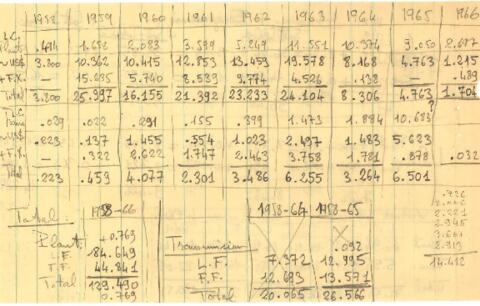 1958 1959 1960 1961 1962 1963 1964 1965 1966
L.C.
Plant .474 1.656 2.083 3.599 5.249 11.551 10.374 3.050 2.697
US$ 3.200 10.362 10.415 12.853 13.459 19.578 8.168 4.763 1.215
+F.X. — 15.635 5.740 8.539 9.774 4.526 .138 — .489
Total 3.200 25.997 16.155 21.392 23.233 24.104 8.306 4.763 1.704
?
L.C.
.039 .022 .291 .155 .379 1.473 1.884 10.683
US$ .223 .137 1.455 .554 1.023 2.497 1.483 5.623
+F.X. — .322 2.622 1.747 2.463 3.758 1.781 .878 .032
Total .223 .459 4.077 2.301 3.486 6.255 3.264 6.501
Total: 1958-66 1958-64 1958-65
Plant: +0.769
L.F. 84.649
F.F. 44.841
129.490
0.769
Transmission .092
L.F. 7.372 12.995
F.F. 12.693 13.571
Total 20.065 26.566
.726
2.221
2.945
3.661
2.313
14.412